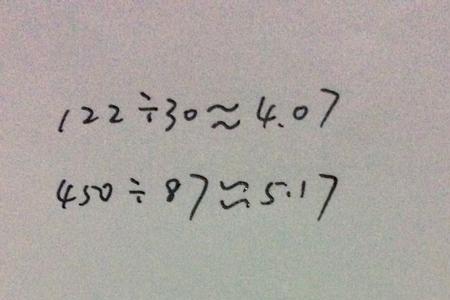 122÷30≈4.07
450÷87≈5.17